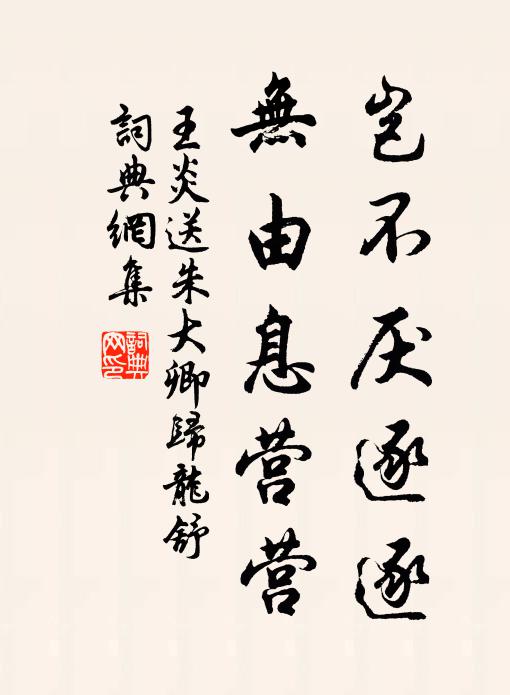 岂不厌逐逐
無由息营营
王炎送朱大卿歸龍舒
詞典網集
詞典
网印